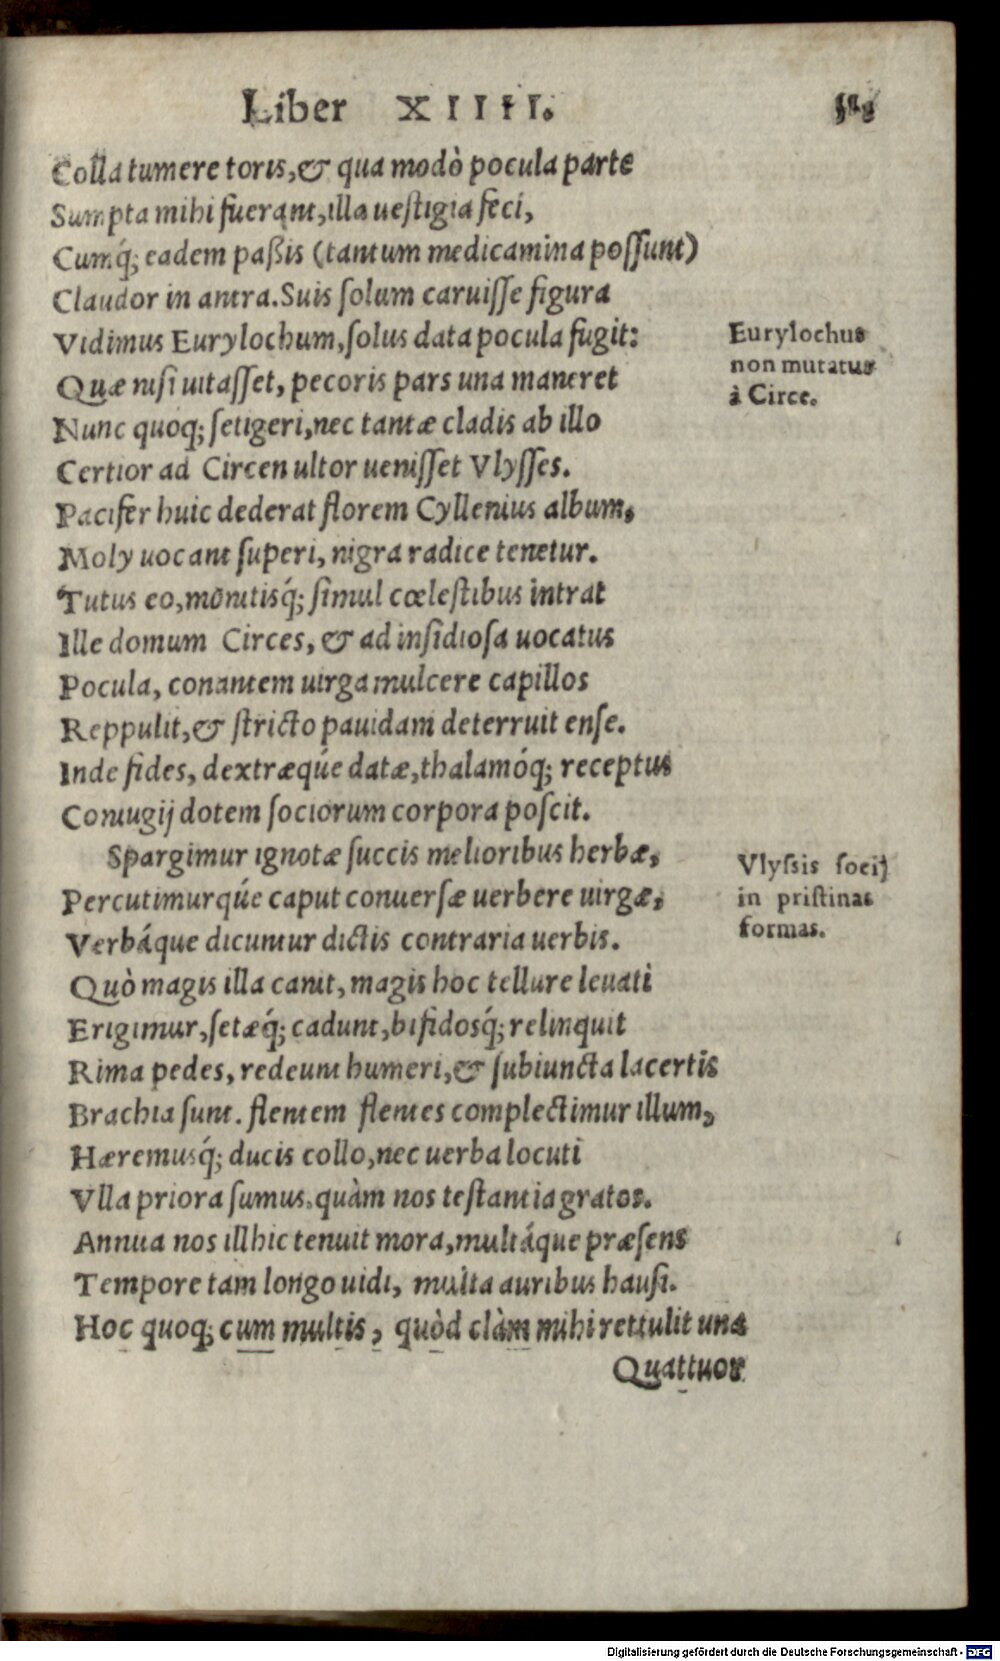 Liber XIIII.
Colla tumere toris, & qua modò pocula parte
Sumpta mihi fuerant, illa uestigia feci,
Cumq́; eadem paßis (tantum medicamina possunt)
Claudor in antra. Suis solum caruisse figura
Vidimus Eurylochum, solus data pocula fugit:
Quæ nisi uitasset, pecoris pars una maneret
Nunc quoq; setigeri, nec tantæ cladis ab illo
Certior ad Circen ultor uenisset Vlysses.
Pacifer huic dederat florem Cyllenius album,
Moly uocant superi, nigra radice tenetur.
Tutus eo, monitisq́; simul cœlestibus intrat
Ille domum Circes, & ad insidiosa uocatus
Pocula, conantem uirga mulcere capillos
Reppulit, & stricto pauidam deterruit ense.
Inde fides, dextræqúe datæ, thalamóq; receptus
Coniugij dotem sociorum corpora poscit.
Spargimur ignotæ succis melioribus herbæ,
Percutimurqúe caput conuersæ uerbere uirgæ,
Verbáque dicuntur dictis contraria uerbis.
Quò magis illa canit, magis hoc tellure leuati
Erigimur, setæq́; cadunt, bifidosq́; relinquit
Rima pedes, redeunt humeri, & subiuncta lacertis
Brachia sunt. flentem flentes complectimur illum,
Hæremusq́; ducis collo, nec uerba locuti
Vlla priora sumus, quàm nos testantia gratos.
Annua nos illhic tenuit mora, multáque præsens
Tempore tam longo uidi, multa auribus hausi.
Hoc quoq; cum multis, quòd clàm mihi rettulit una
Quattuor
Eurylochus
non mutatus
à Circe.
Vlyssis socij
in pristinas
formas.
Digitalisierung gefördert durch die Deutsche Forschungsgemeinschaft - DFG